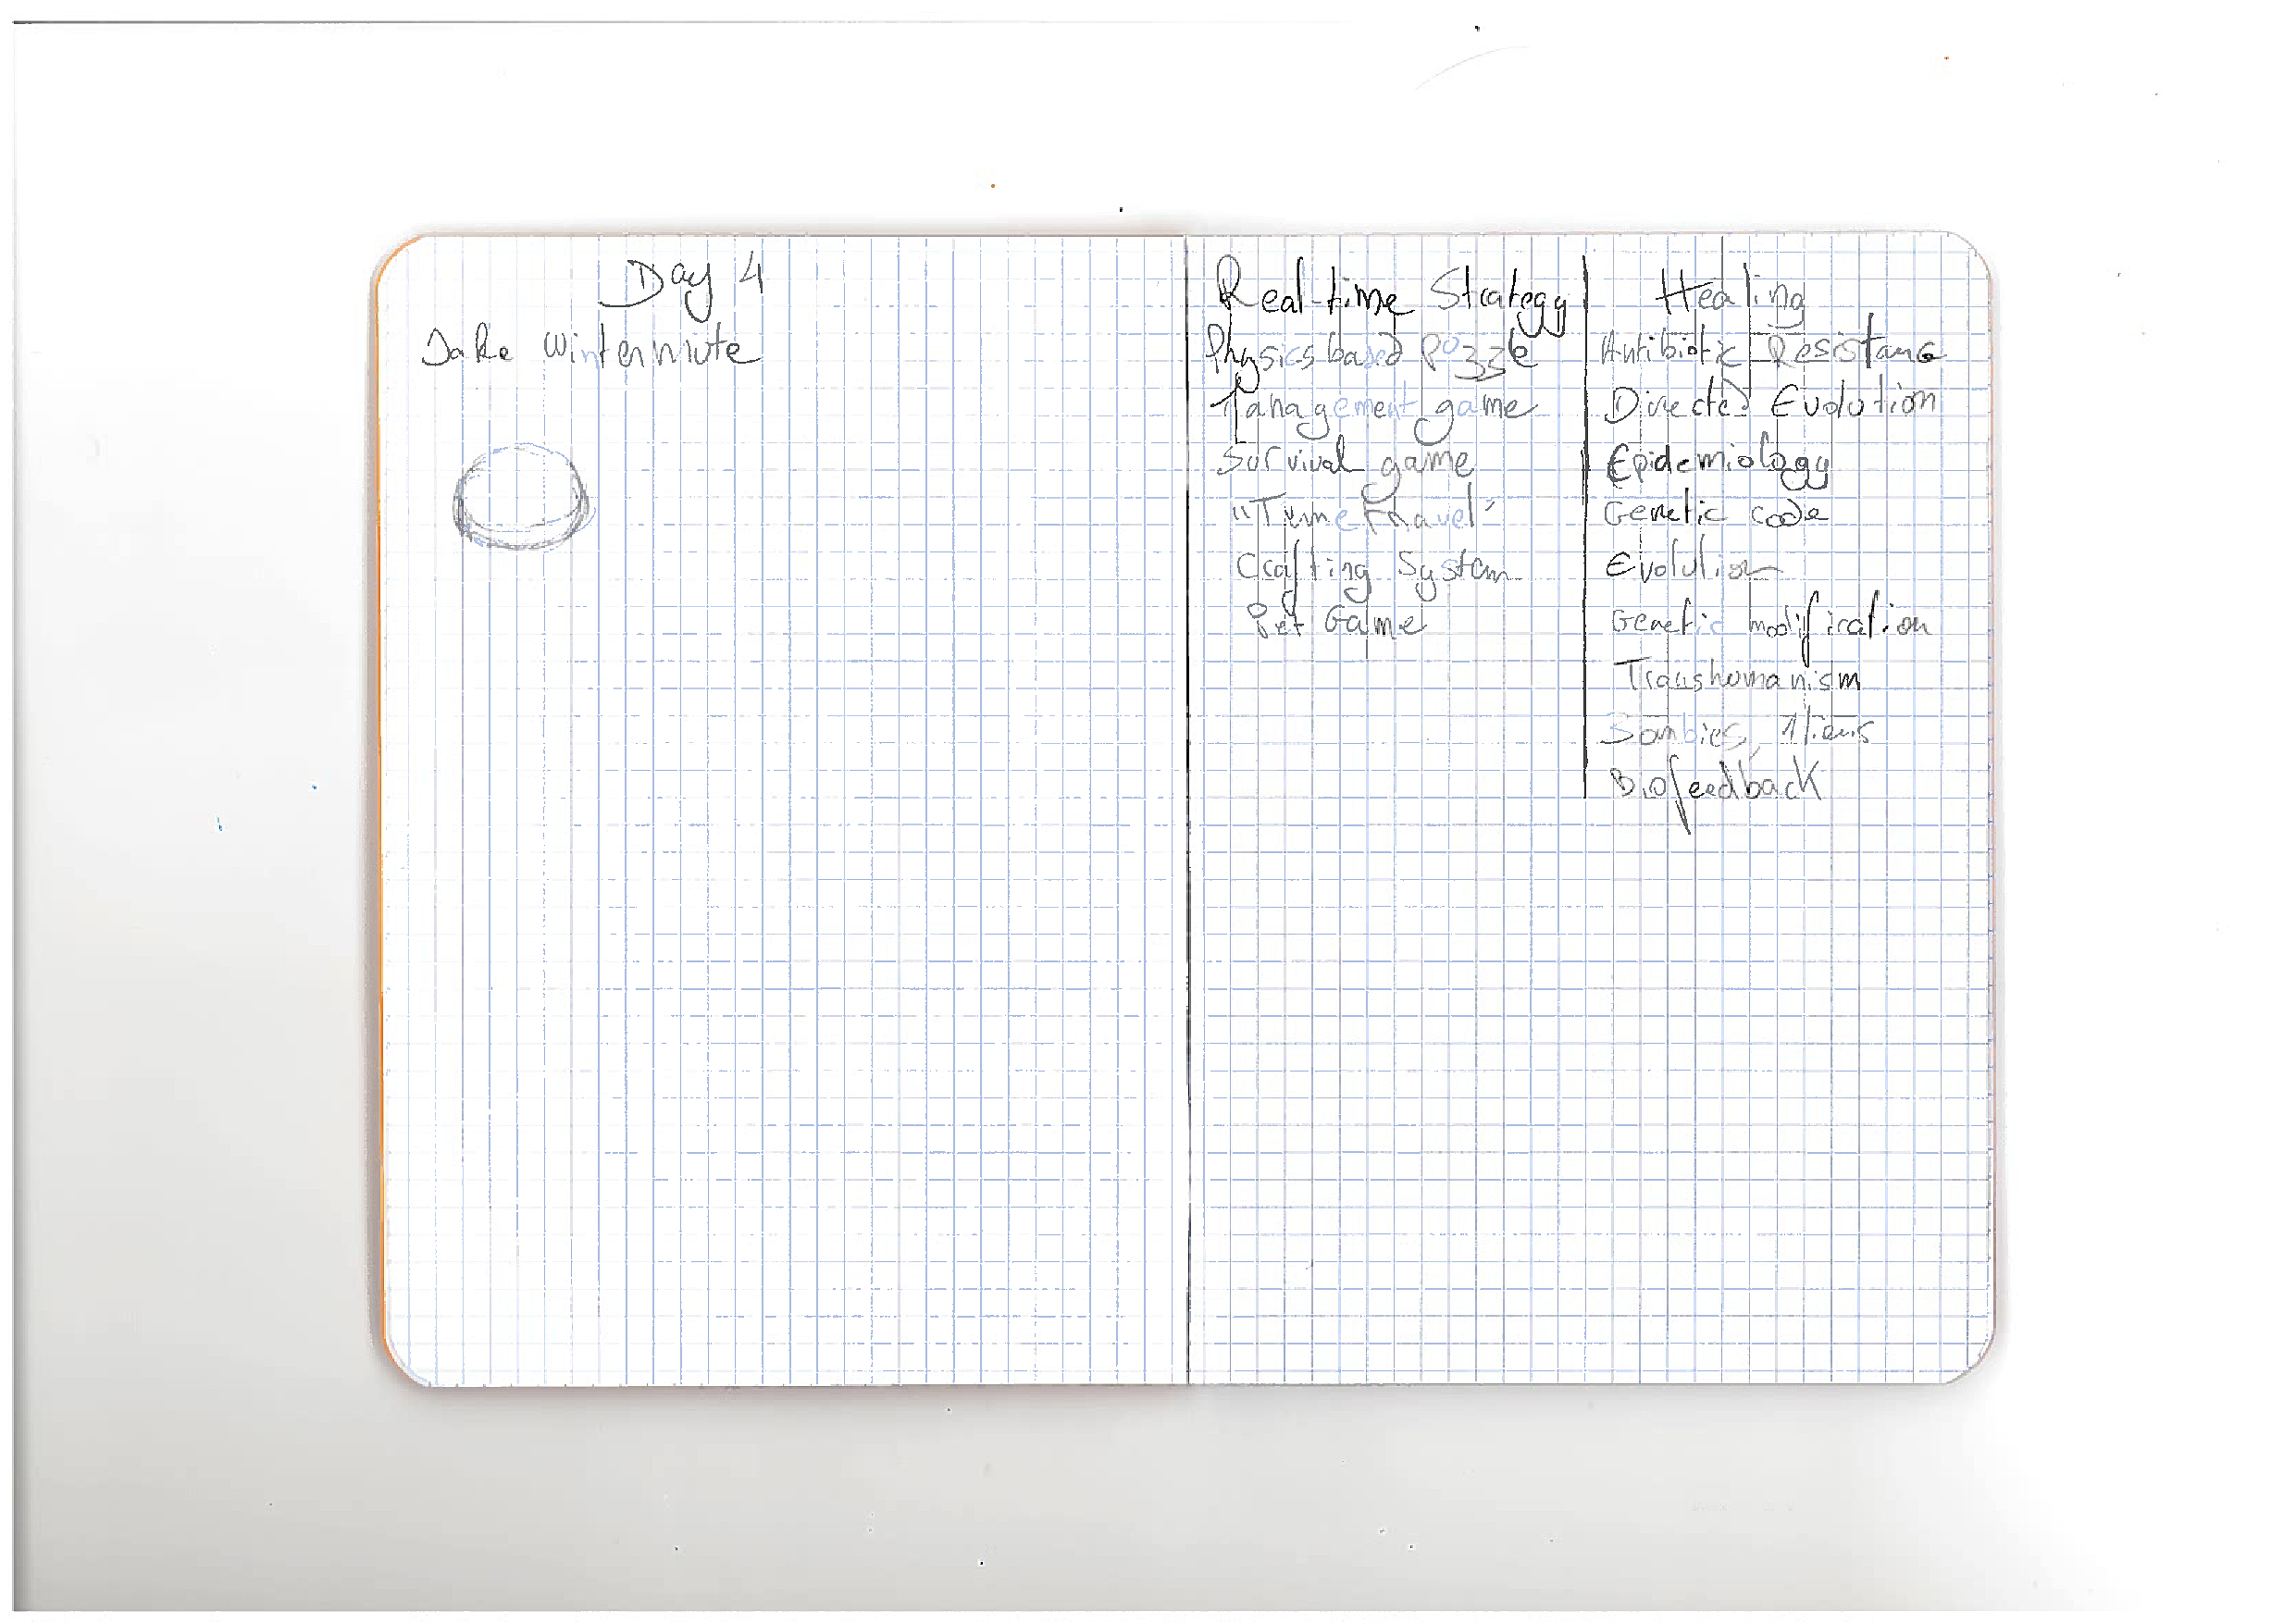 Day 4
Jake Wintermute
Real-time Strategy
Physics based Puzzle
Management game
Survival game
"Time travel"
Crafting System
Pet Game
Healing
Antibiotic Resistance
Directed Evolution
Epidemiology
Genetic code
Evolution
Genetic modification
Transhumanism
Zombies, Aliens
Biofeedback